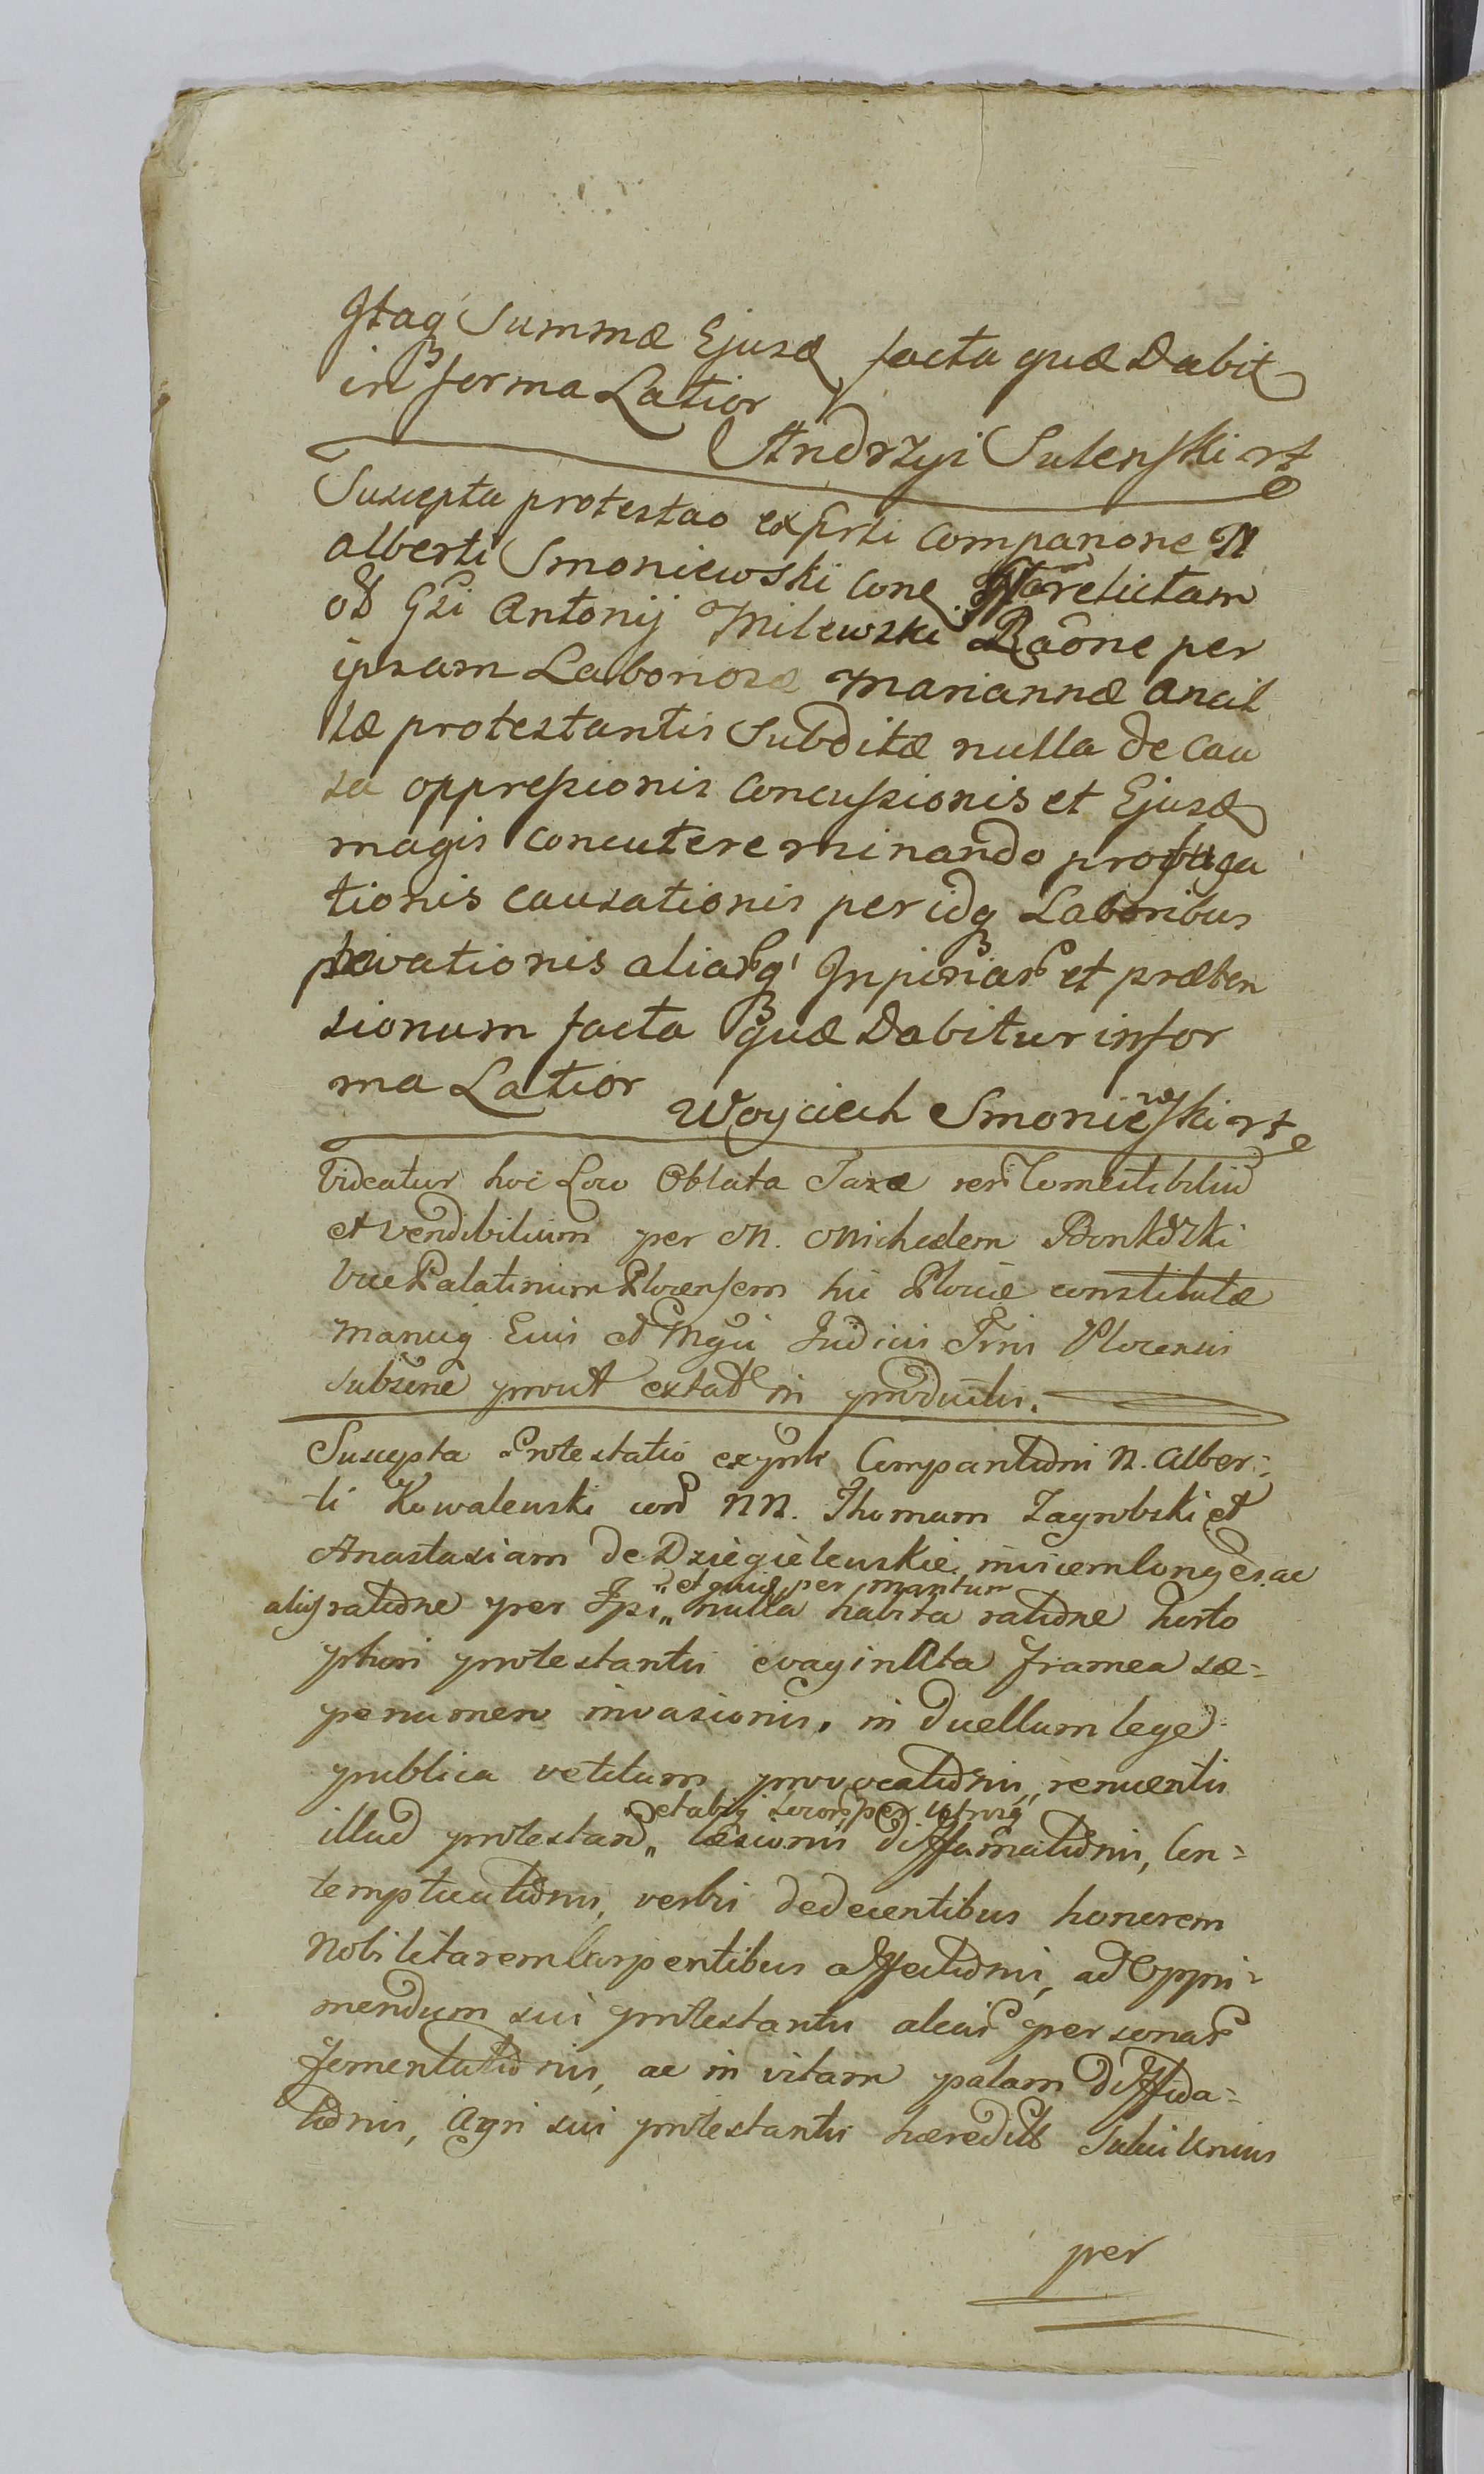 Itaq Summæ Ejusd facta quæ Dabit
in forma Latior
Andrzyi Sulenski rt
Suscepta protestao ex prti Comparione N
Alberti Smoniewski con relictam
od Gsi Antonij Milewski Raõne per
ipsam Laboriosæ Mariannæ Ancil
læ protestantis Subditæ nulla de Cau
sa oppressionis Concussionis et Ejusd
magis Concutere minando profuga
tionis causationis per idq Laboribus
privationis aliarq Injuriar et præten
sionum facta quæ Dabitur in for
ma Latior
Woyciech Smoniewski rt
Videatur hoc Loco Oblata Taxæ rer Comestibiliu
et vendibilium per M. Michælem Bonkoski
Vice Palatinum Plocensem hic Plociæ constitutæ
manuq Eius et Mgci Judicis Trris Plocensis
subscne prout extat in productis.
Suscepta Protestatio ex prte Comparitiõni N. Alber=
ti Kowalewski con NN. Thomam Zagrobski et
Anastasiam de Dziegielewskie invicem longes ac
et quid per maritum
aliis ratiõne per Ipsi „ nulla habita ratiõne horto
phori protestantis evaginata framea sæ=
penumero invasionis, in duellum lege
publica vetitum provocatiõnis, renuentis
et abiq per utrosq
illud protestand „ læsionis diffamatiõnis, Con=
temptuatiõnis, verbis dedecentibus honorem
Nobilitarem Carpentibus affectiõnis, ad Oppri=
mendum sui protestantis aliar personar
fomentatiõnis, ac in vitam palam diffida=
tiõnis, Agri sui protestantis hæredit Sulci Unius
per